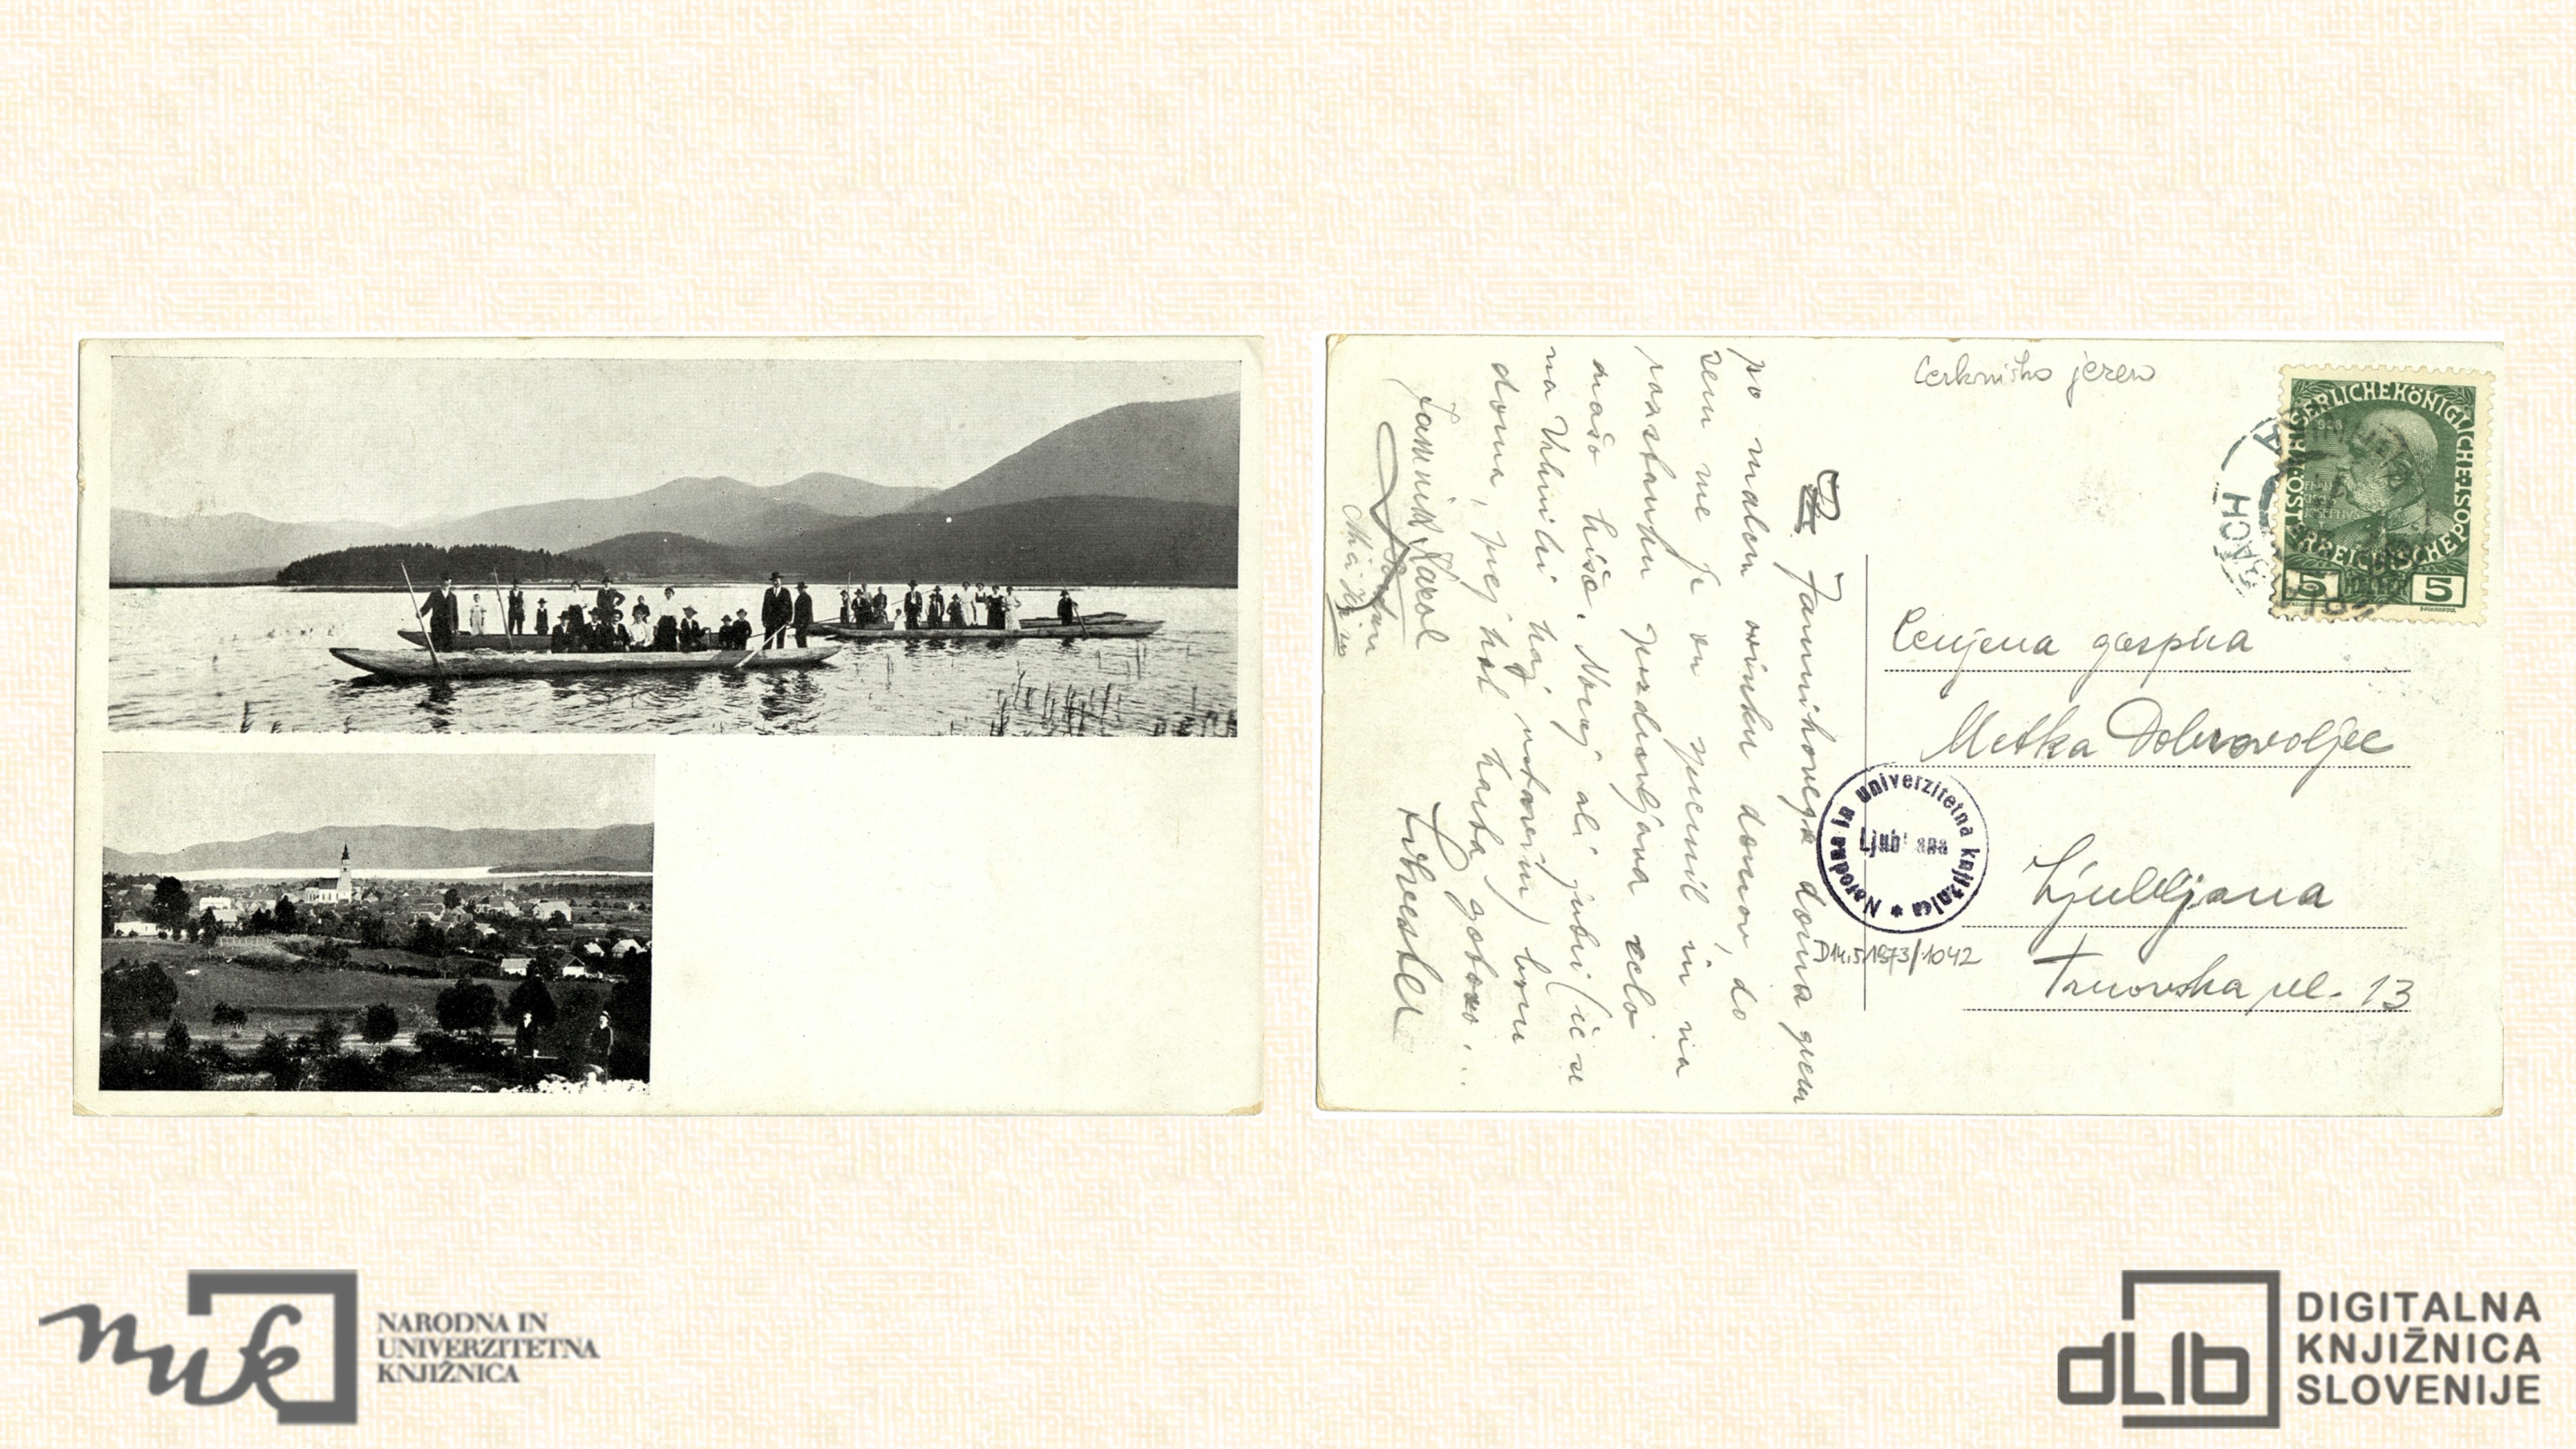 Cerkniško jezero
KAISERLICHE KÖNIGLICHE ÖSTERREICHISCHE POST
1908
5 5
Cenjena gospica
Metka Dobrovoljec
Ljubljana
Trnovska ul. 13
Narodna in univerzitetna knjižnica
Ljubljana
D 14.5.1973/1042
Jamnikovega doma grem
po malem ovinku domov, do
sem me je on spremil in na
razstanku pozdravljava celo
našo hišo. Moraj ali ljubi (če se
na Vrhniki kaj ustavim) bom
doma, pej kol karta gotovo...
Jamnik Karol
Silvester
NARODNA IN
UNIVERZITETNA
KNJIŽNICA
dLib
DIGITALNA
KNJIŽNICA
SLOVENIJE